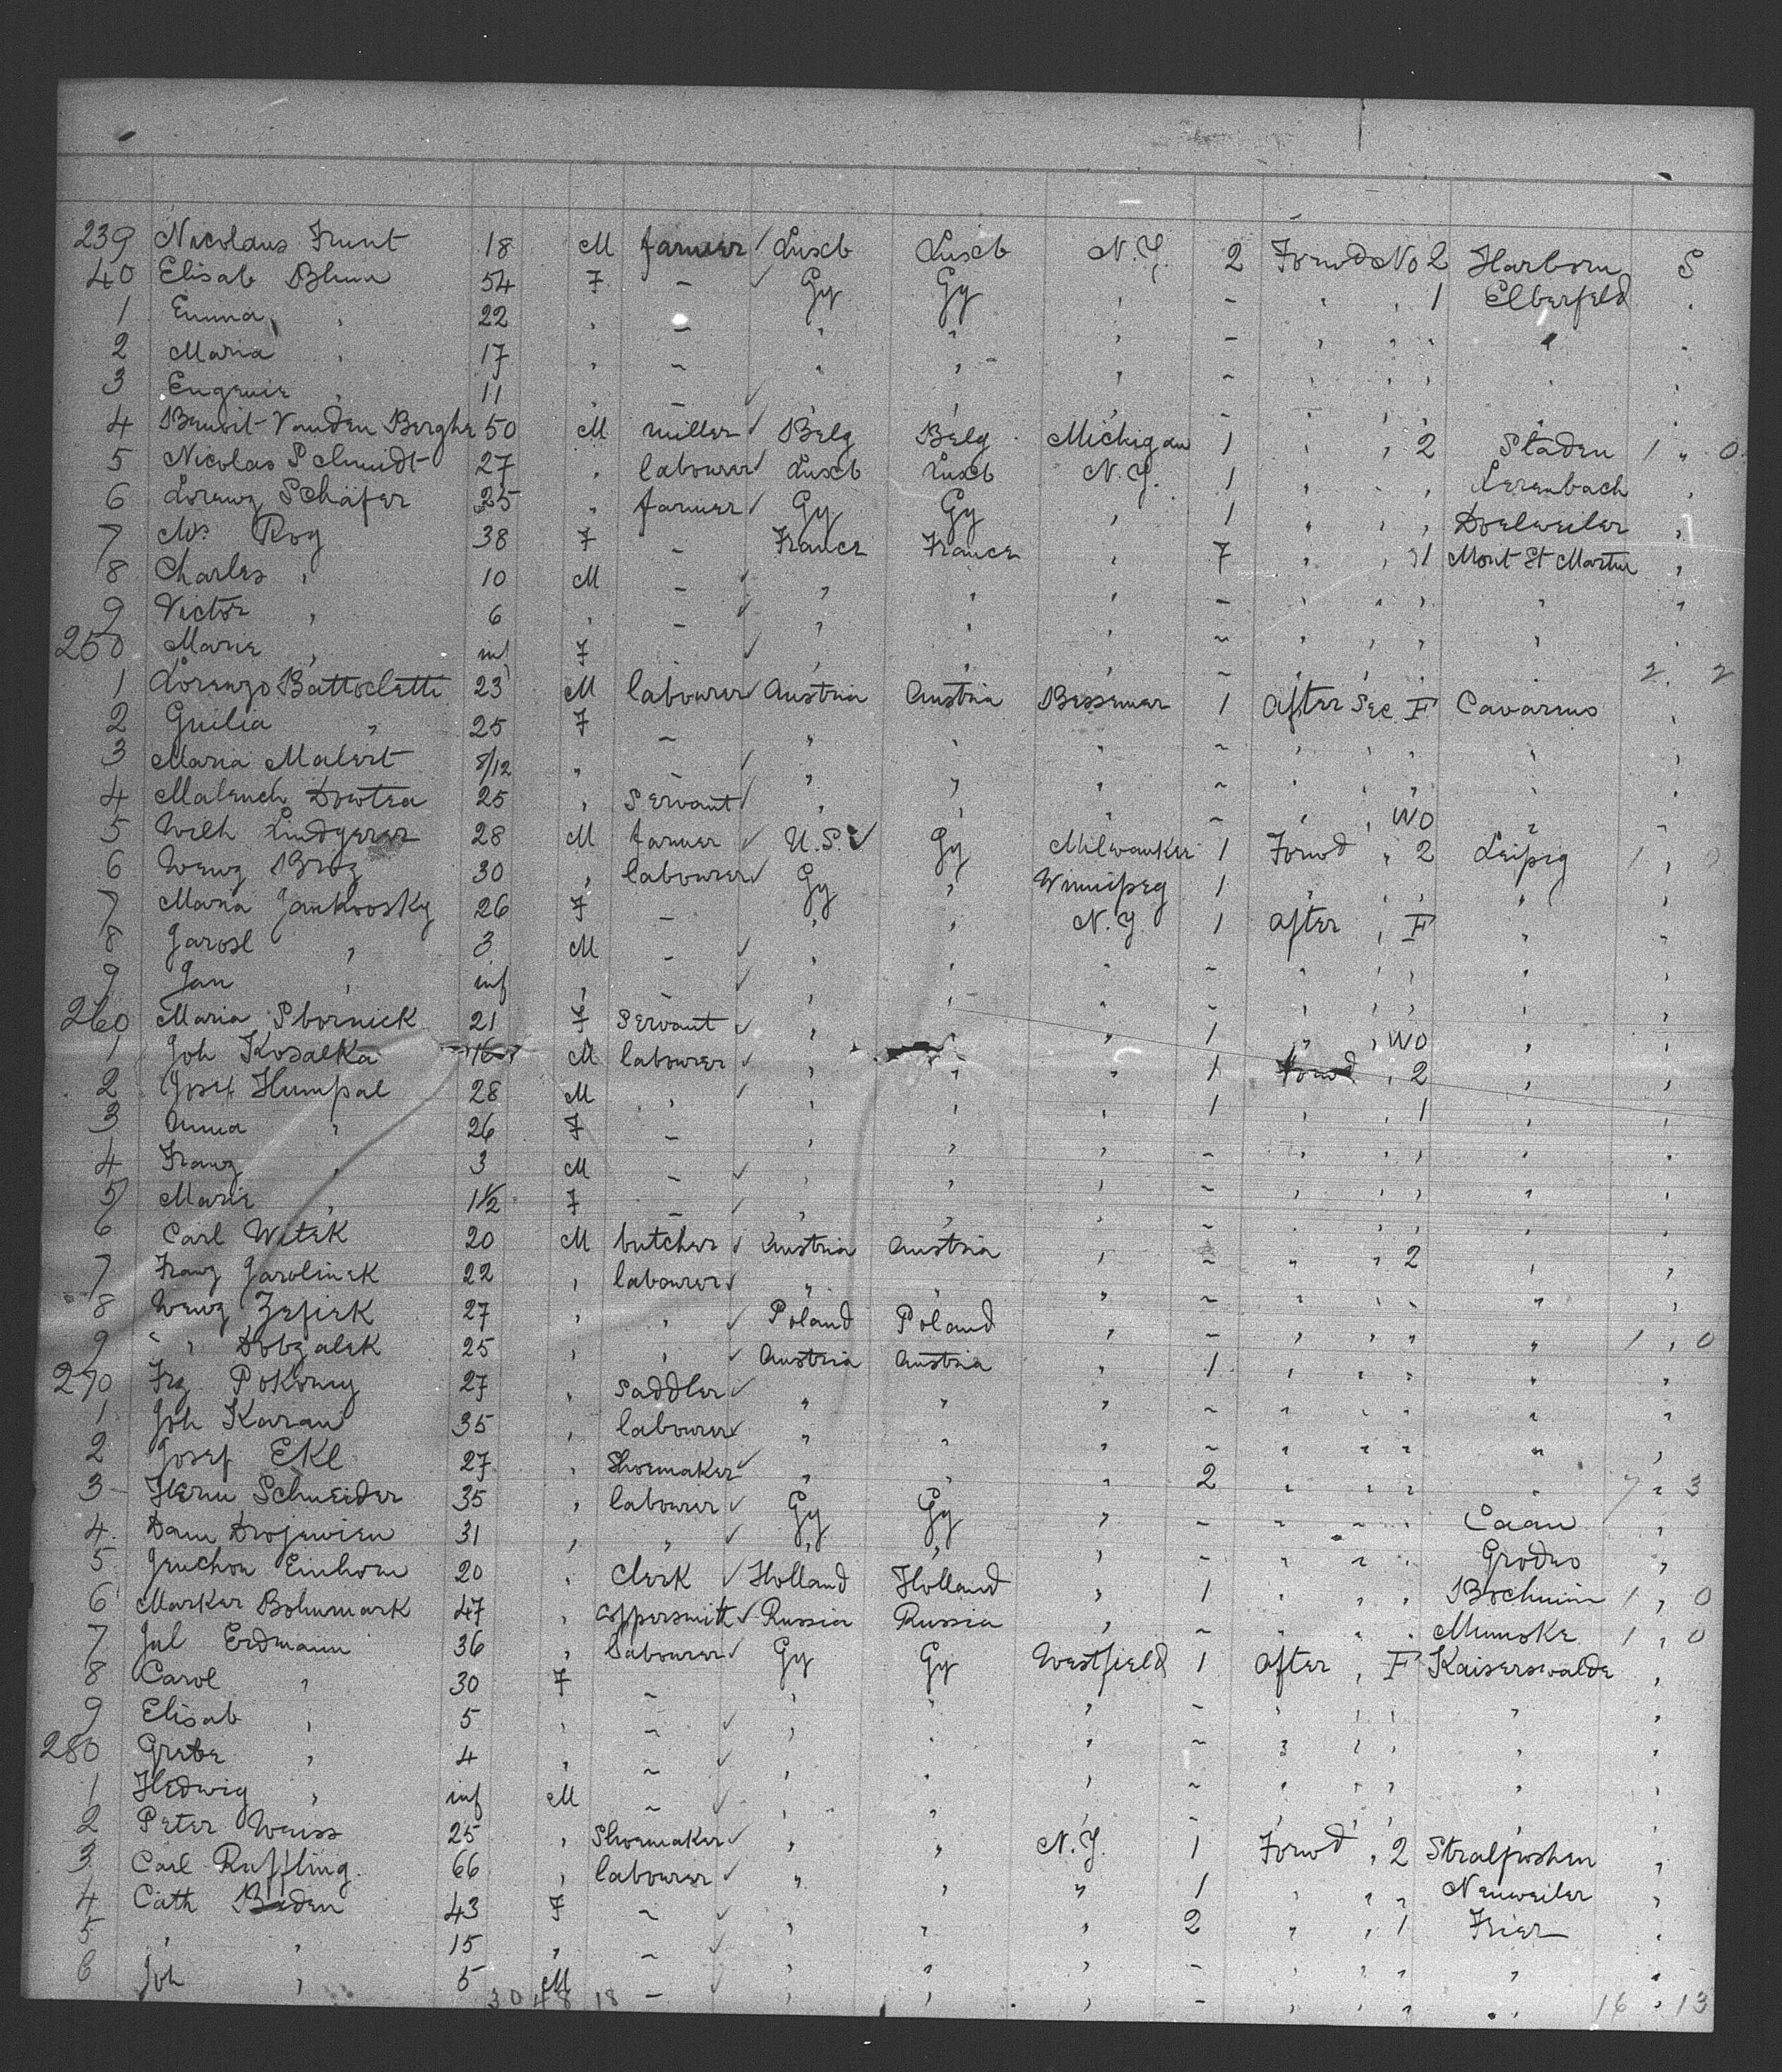 239 Nicolaus Frent 18 M farmer Luxb Luxb N.Y. 2 Forwd No 2 Harborn S
40 Elisab Blum 54 F - Gy Gy " - " " 1 Elberfeld "
1 Emma " 22 " - " " " - " " " " "
2 Maria " 17 " - " " " - " " " " "
3 Eugenie " 11 " - " " " - " " " " "
4 Benoit Vanden Berghe 50 M miller Belg Belg Michigan 1 " " 2 Staden 1 " 0
5 Nicolas Schmidt 27 " labourer Luxb Luxb N.Y. 1 " " " Lerenbach "
6 Lorenz Schäfer 25 " farmer Gy Gy " 1 " " " Doelweiler "
7 Mrs Roy 38 F - France France " 7 " " 1 Mont St Martin "
8 Charles " 10 M - " " " - " " " " "
9 Victor " 6 " - " " " - " " " " "
250 Marie " inf F - " " " - " " " " 2 . 2
1 Lorenzo Battocletti 23 M labourer Austria Austria Bessemer 1 After Sec F Cavareno "
2 Guilia " 25 F - " " " - " " " " "
3 Maria Malert 8/12 " - " " " - " " " " "
4 Malench Dowtea 25 " Servant " " " - " " WO " "
5 Wilh Lindgerer 28 M farmer U.S. Gy Milwaukee 1 Forwd " 2 Leipzig 1 , 0
6 Wenz Broz 30 " labourer Gy " Winnipeg 1 " " " " "
7 Maria Jankoosky 26 F - " " N.Y. 1 After " F " "
8 Jarosl " 3 M - " " " - " " " " "
9 Jan " inf " - " " " - " " " " "
260 Maria Sbornick 21 F Servant " " " 1 " " WO " "
1 Joh Kosalka 16 M labourer " " " 1 Forwd " 2 " "
2 Josef Humpal 28 M " " " " 1 " " 1 " "
3 Anna " 26 F - " " " - " " " " "
4 Franz " 3 M - " " " - " " " " "
5 Marie " 1½ F - " " " - " " " " "
6 Carl Witek 20 M butcher Austria Austria " - " " 2 " "
7 Franz Jarolinek 22 " labourer " " " - " " " " "
8 Wenz Zefiek 27 " " Poland Poland " - " " " " 1 , 0
9 " " Dobzalek 25 " " Austria Austria " 1 " " " " "
270 Frz Pokorny 27 " Saddler " " " - " " " " "
1 Joh Karan 35 " labourer " " " - " " " " "
2 Josef Ekl 27 " Shoemaker " " " 2 " " " " 7 " 3
3 Herm Schneider 35 " labourer Gy Gy " - " " " Caan "
4 Dam Drojewien 31 " " " " " - " " " Grodno "
5 Jenchon Einhorn 20 " Clerk Holland Holland " 1 " " " Bochnim 1 , 0
6 Marker Bohumark 47 " Coppersmith Russia Russia " - " " " Mumske 1 , 0
7 Jul Erdmann 36 " labourer Gy Gy Westfield 1 After " F Kaiserswalde "
8 Carol " 30 F - " " " - " " " " "
9 Elisab " 5 " - " " " - " " " " "
280 Grete " 4 " - " " " - " " " " "
1 Hedwig " inf M - " " " - " " " " "
2 Peter Weiss 25 " Shoemaker " " N.Y. 1 Forwd " 2 Stralposhen "
3 Carl Ruffling 66 " labourer " " " 1 " " " Neuweiler "
4 Cath Baden 43 F - " " " 2 " " 1 Trier "
5 " " 15 " - " " " - " " " " "
6 Joh " 5 M - " " " - " " " "
30 48 18 16 " 13